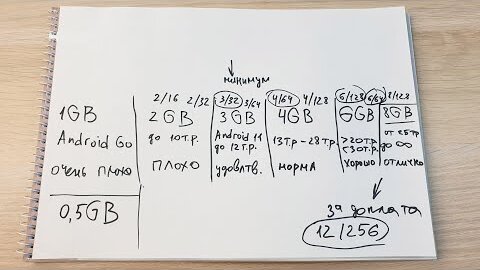 минимум
2/16 2/32 3/32 3/64 4/64 4/128 6/128 6/64 8/128
1GB 2GB 3GB 4GB 6GB 8GB
Android Go до 10т.р. Android 11 до 12т.р. 13т.р-28т.р. >20т.р. <30т.р. от 25т.р до ∞
очень плохо плохо удовлтв. норма хорошо отлично
0,5GB
за доплата
12/256